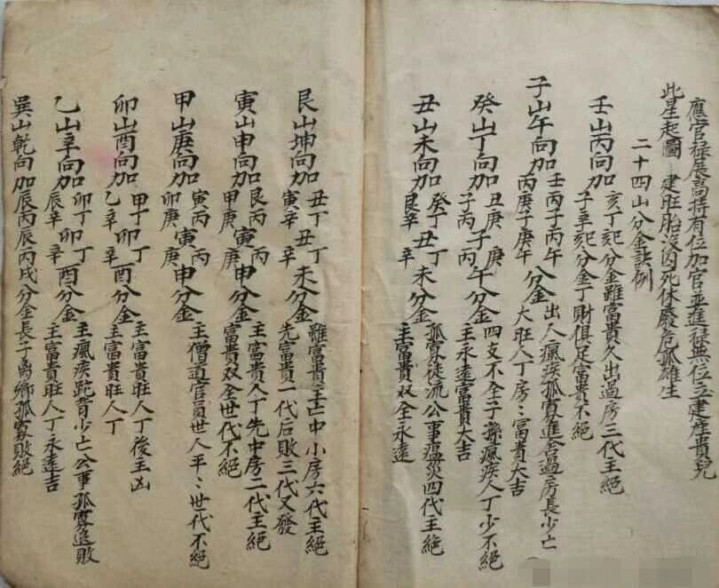 應官祿展高持有位加官並進祿無位立建產貴兒
此星起圖 建旺胎沒囚死休廢危孤雄生
二十四山分金訣例
壬山丙向加 亥丁巳分金雖富貴久出過房三代主絕
子辛巳分金丁財俱足富貴不絕
子山午向加 壬丙子丙午分金 出人瘋疾孤寡進合過房長少亡
丙庚子庚午 大旺人丁房〻富貴大吉
癸山丁向加 丑庚 庚午分金 四支不全子孫瘋疾人丁少不絕
子丙 子丙 主永遠富貴大吉
丑山未向加 癸丁丑丁未分金 孤寡徒流公事瘟災四代主絕
艮辛 辛 主富貴双全永遠
艮山坤向加 丑丁丑丁未分金 雖富貴主亡中小房六代主絕
寅辛 辛 先富貴一代后敗三代又發
寅山申向加 艮丙寅丙申分金 主富貴人丁先中房二代主絕
甲庚 庚 富貴双全世代不絕
甲山庚向加 寅丙寅丙申分金 主僧道官員世人平〻世代不絕
卯庚 庚
卯山酉向加 甲丁卯丁酉分金 主富貴旺人丁後主凶
乙辛 辛 主富貴旺人丁
乙山辛向加 卯丁卯丁酉分金 主瘋疾跎背少亡公事孤寡退敗
辰辛 辛 主富貴旺人丁永遠吉
巽山乾向加辰丙辰丙戌分金長子离鄉孤寡敗絕